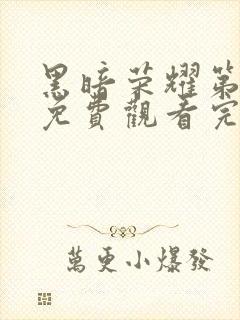 黑暗荣耀第
免費觀看完
萬更小爆發